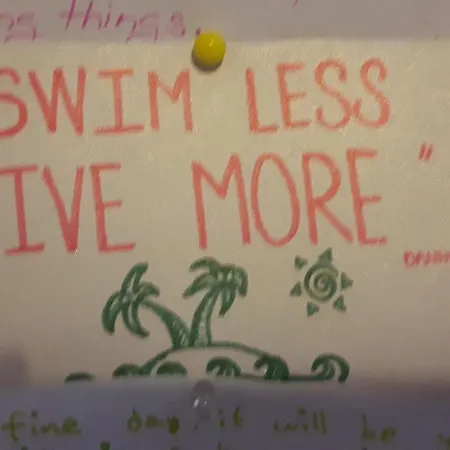 things.
SWIM LESS
IVE MORE "
fine day, it will be